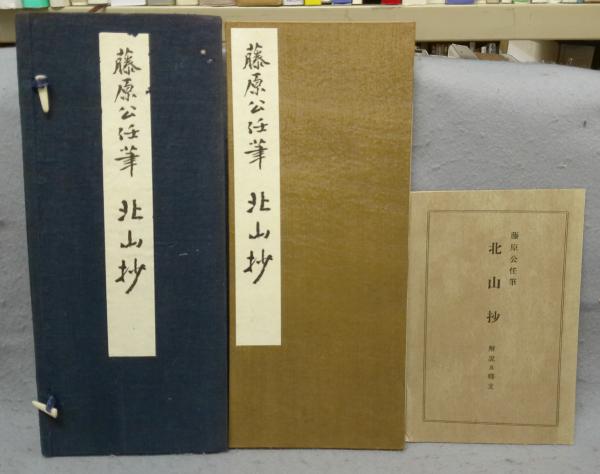 藤原公任筆 北山抄
藤原公任筆 北山抄
藤原公任筆
北山抄
解説及釋文